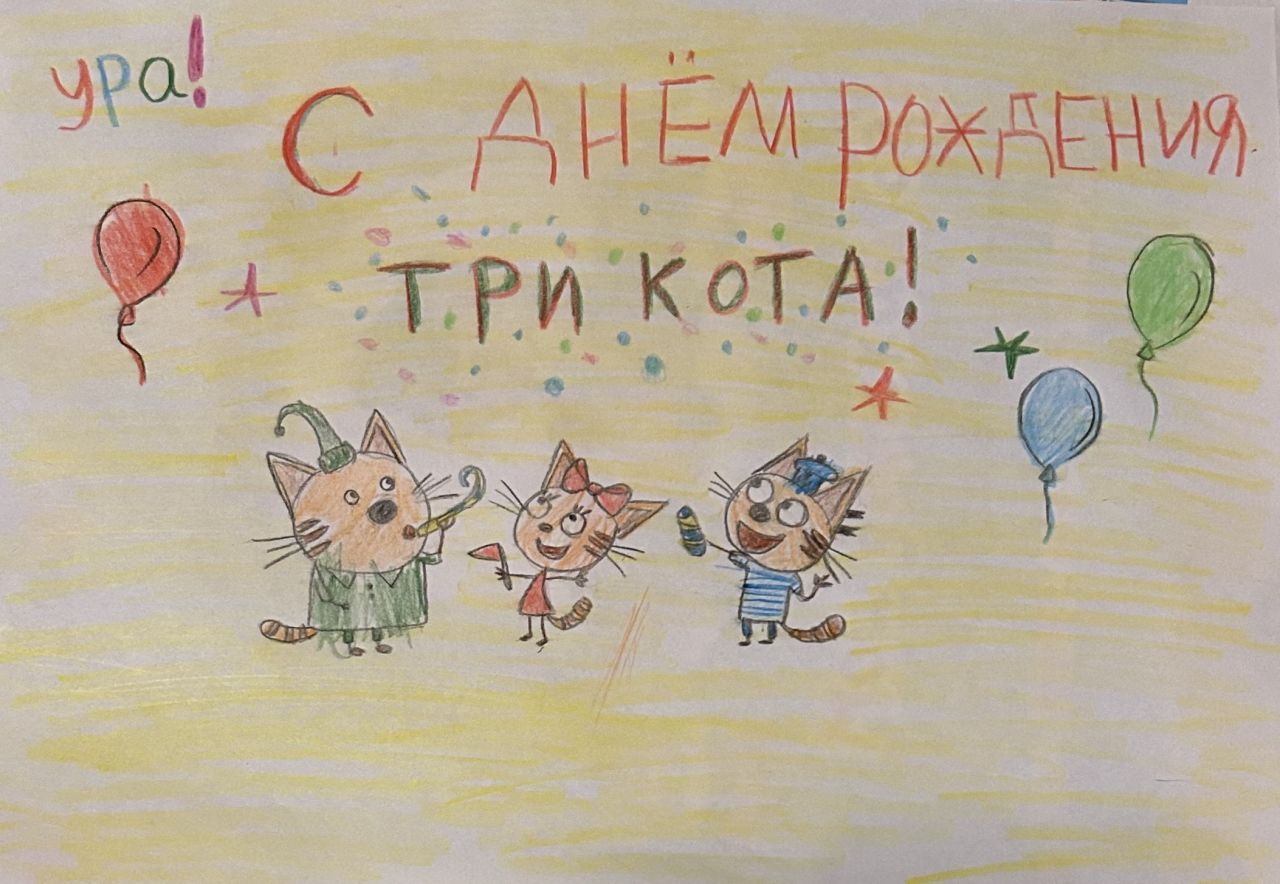 ура!
С ДНЁМ РОЖДЕНИЯ
ТРИ КОТА!